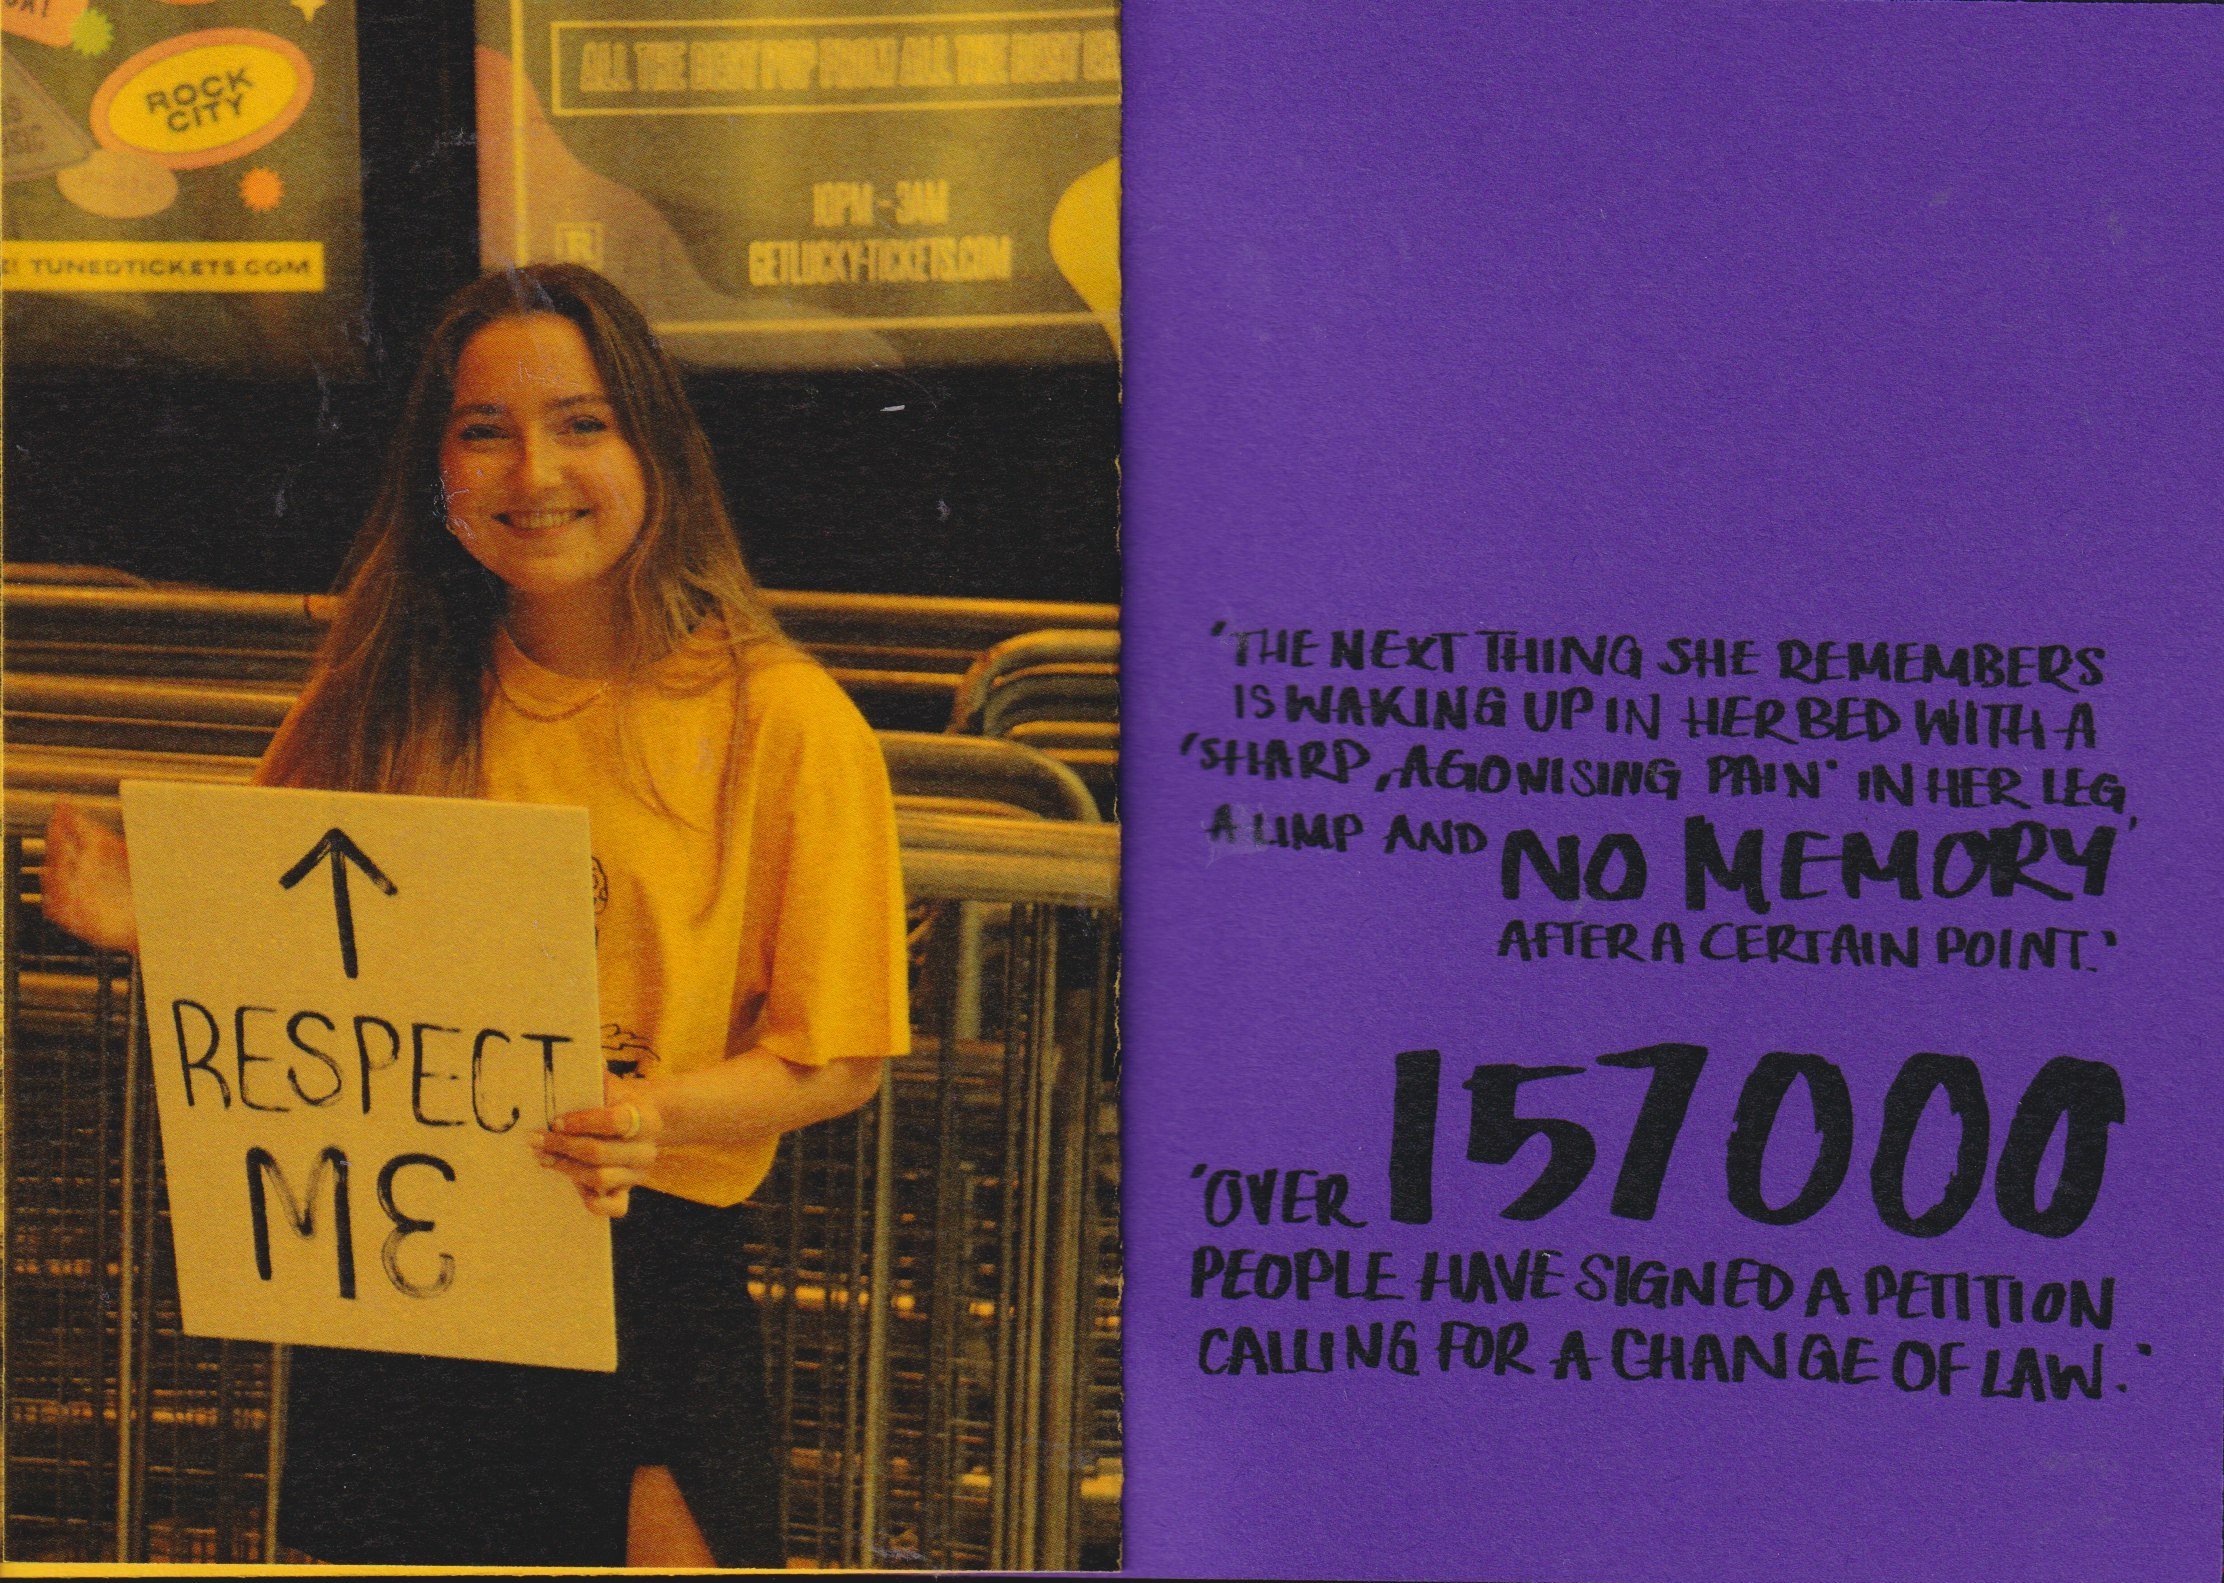 ROCK
CITY
! TUNEDTICKETS.COM
ALL THE BEST POP
ALL THE BEST
10PM - 3AM
GETLUCKY-TICKETS.COM
RESPECT
ME
'THE NEXT THING SHE REMEMBERS
IS WAKING UP IN HER BED WITH A
'SHARP, AGONISING PAIN' IN HER LEG,
A LIMP AND NO MEMORY
AFTER A CERTAIN POINT.'
'OVER 157000
PEOPLE HAVE SIGNED A PETITION
CALLING FOR A CHANGE OF LAW.'